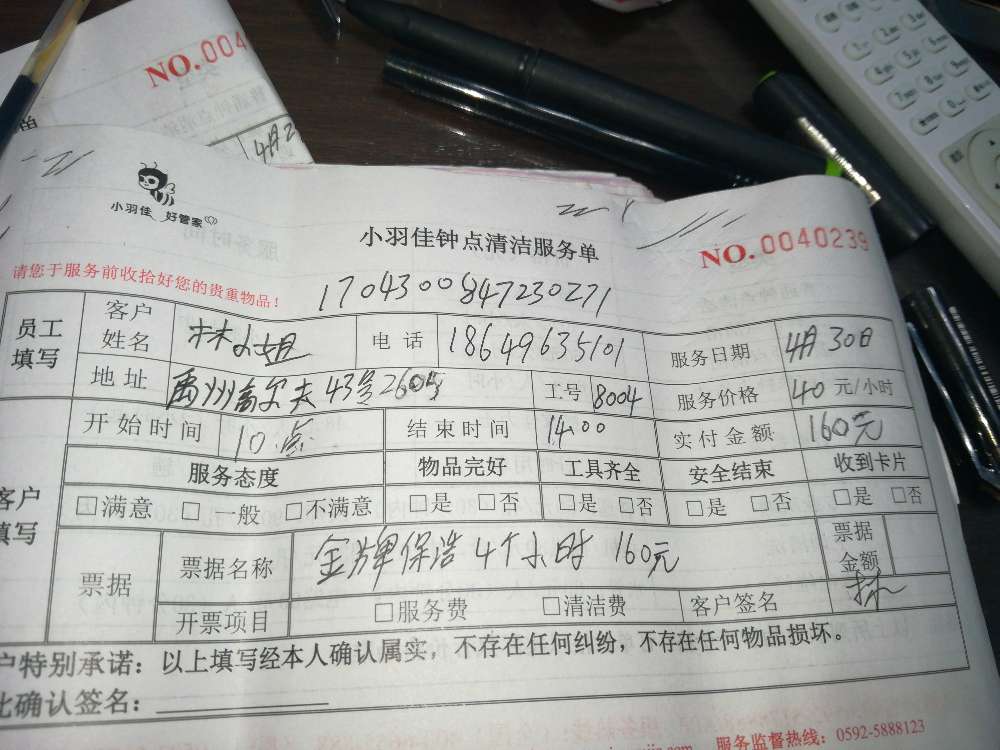 NO.004
单
4月2
小羽佳 好管家
小羽佳钟点清洁服务单
NO.0040239
请您于服务前收拾好您的贵重物品！
1704300847230271
员工填写 客户姓名 林小姐 电话 18649635101 服务日期 4月30日
地址 禹州高尔夫43号260 工号 8004 服务价格 40元/小时
客户填写 开始时间 10点 结束时间 14:00 实付金额 160元
服务态度 物品完好 工具齐全 安全结束 收到卡片
□满意 □一般 □不满意 □是 □否 □是 □否 □是 □否 □是 □否
票据 票据名称 金牌保洁4个小时 160元 票据金额
开票项目 □服务费 □清洁费 客户签名 林
户特别承诺：以上填写经本人确认属实，不存在任何纠纷，不存在任何物品损坏。
此确认签名：
服务监督热线：0592-5888123